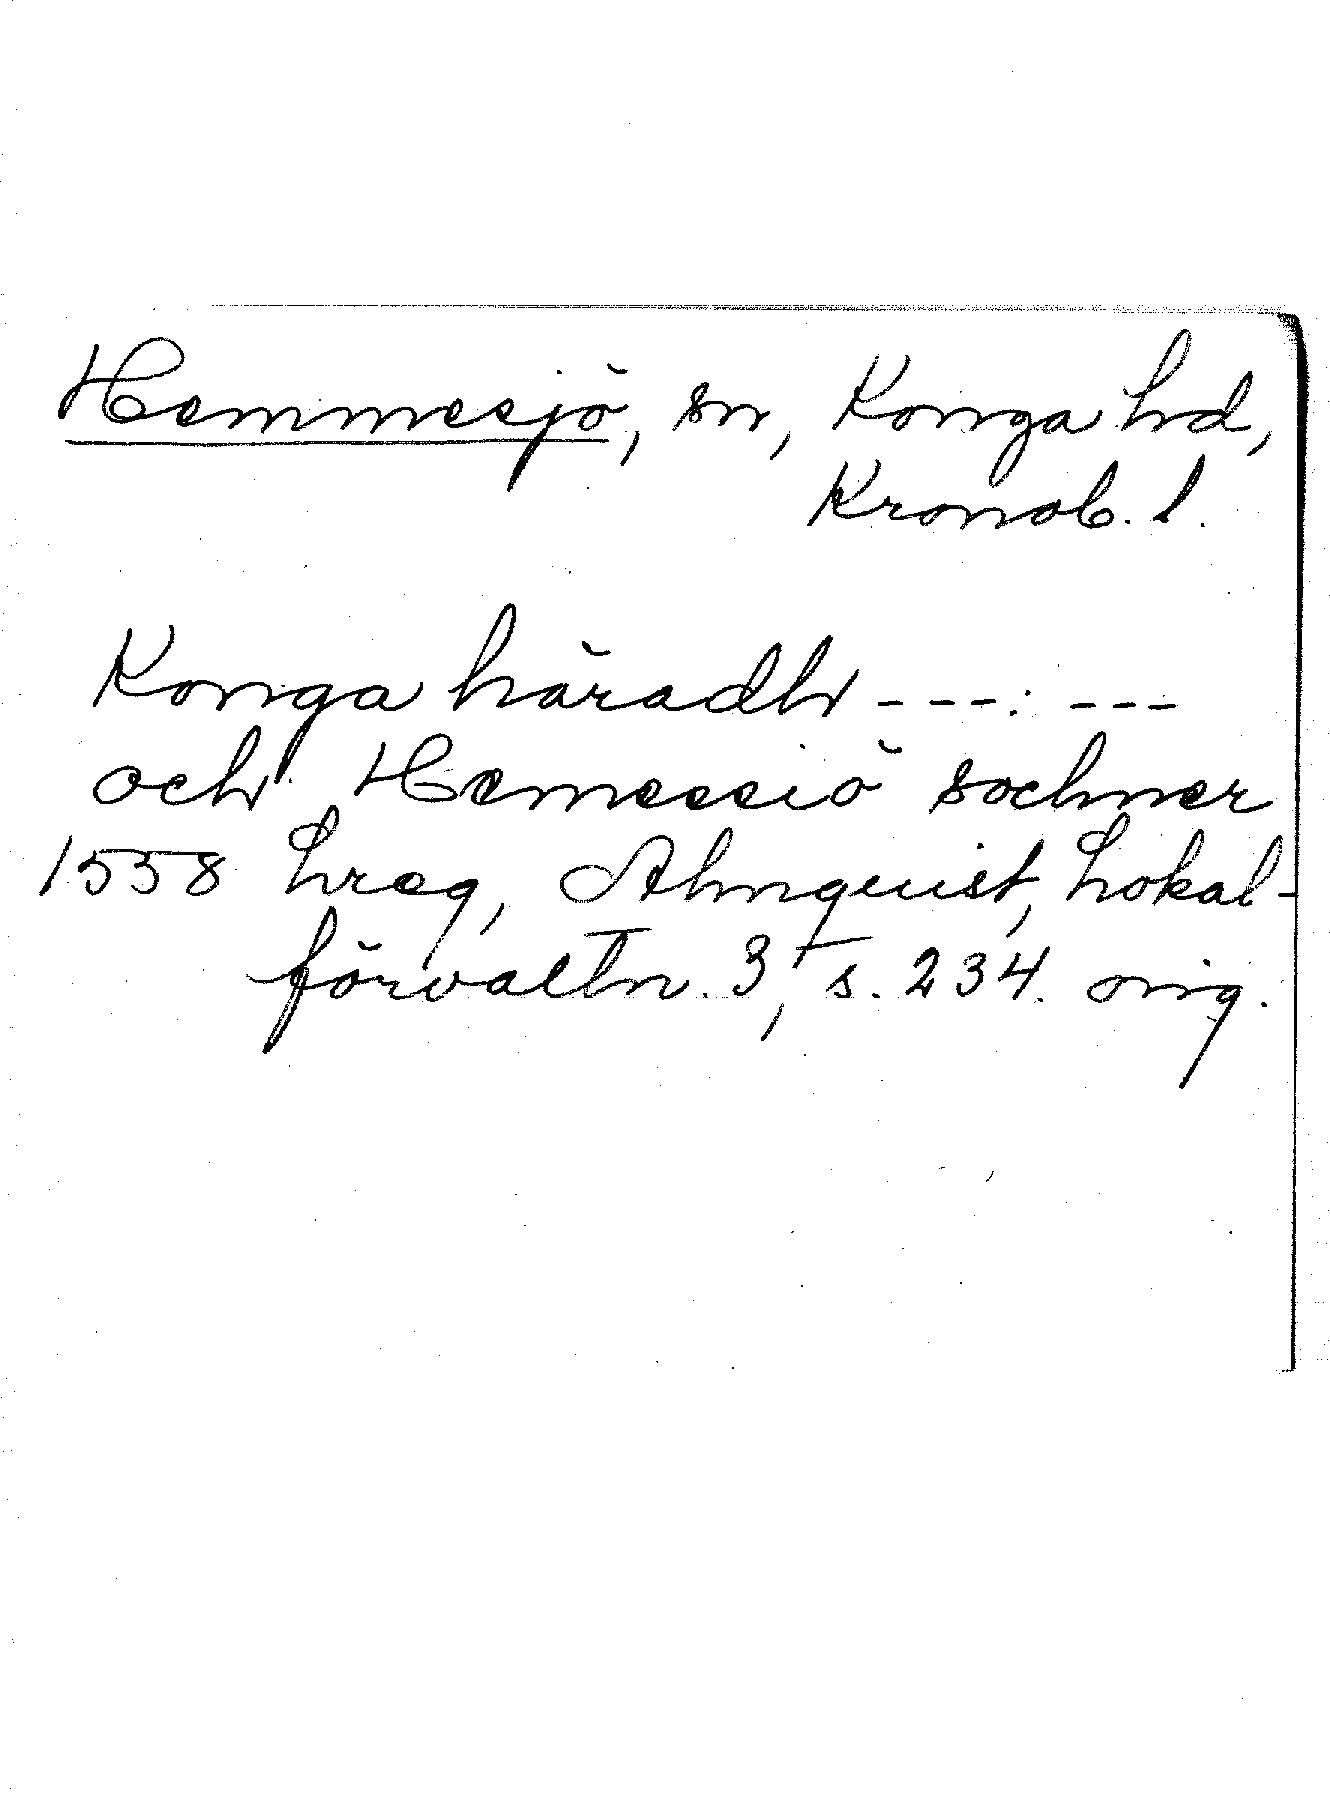 Hemmesjö, sn, Konga hd,
Kronob. l.
Konga häradh ---: ---
och Hemessiö sochner
1558 Lreg, Almquist, Lokal-
förvaltn. 3, s. 234. orig.